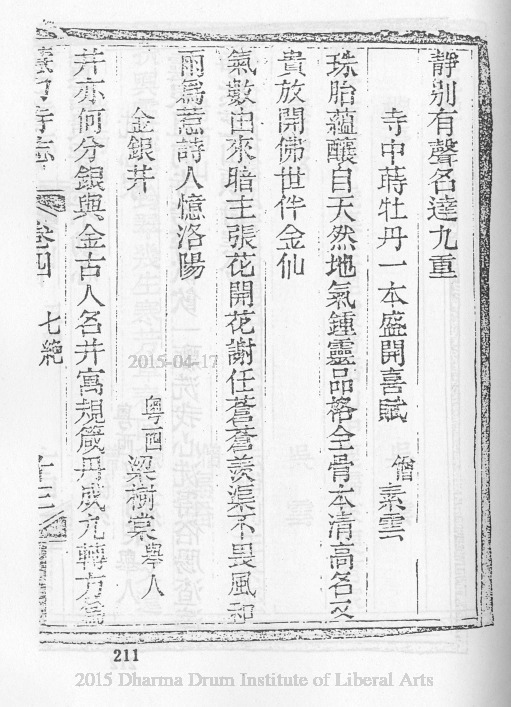 靜別有聲名達九重
寺中蒔牡丹一本盛開喜賦 僧素雲
珠胎蘊釀自天然地氣鍾靈品格全骨本清高名又
貴放開佛世伴金仙
氣數由來暗主張花開花謝任蒼蒼羨渠不畏風和
雨為惹詩人憶洛陽
金銀井 粵西梁樹棠舉人
井亦何分銀與金古人名井寓規箴丹成九轉方為
寺志 卷四 七絕 十三
2015-04-17
211
2015 Dharma Drum Institute of Liberal Arts